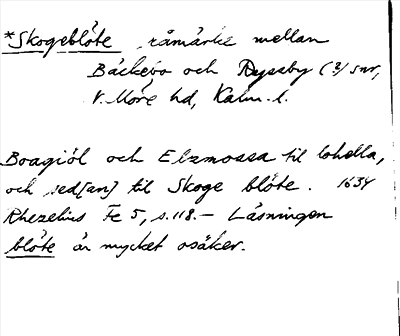 *Skogeblöte råmärke mellan
Bäckebo och Ryssby (?) snr,
N. Möre hd, Kalm. l.
Boagiöl och Elzmossa til lohella,
och sed[an] til Skoge blöte. 1634
Rhezelius Fc 5, s. 118. – Läsningen
blöte är mycket osäker.